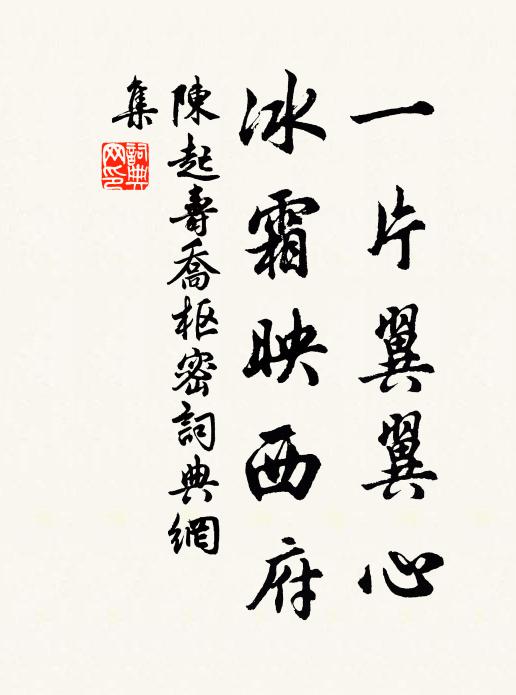 一片翼翼心
冰霜映西府
陳起壽喬樞密詞典網
集
詞典網印